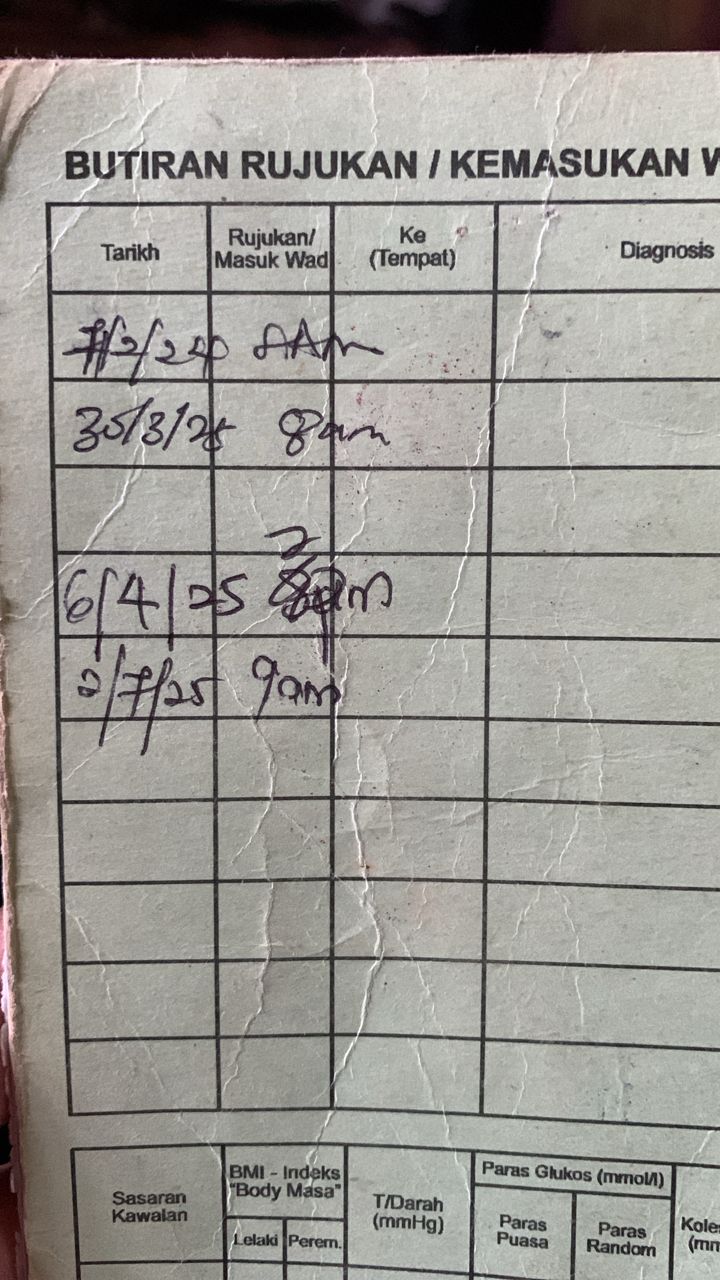 BUTIRAN RUJUKAN / KEMASUKAN W
Tarikh
Rujukan/
Masuk Wad
Ke
(Tempat)
Diagnosis
30/3/25 8am
6/4/25
2/7/25 9am
Sasaran
Kawalan
BMI - Indeks
"Body Masa"
Lelaki Perem.
T/Darah
(mmHg)
Paras Glukos (mmol/l)
Paras
Puasa
Paras
Random